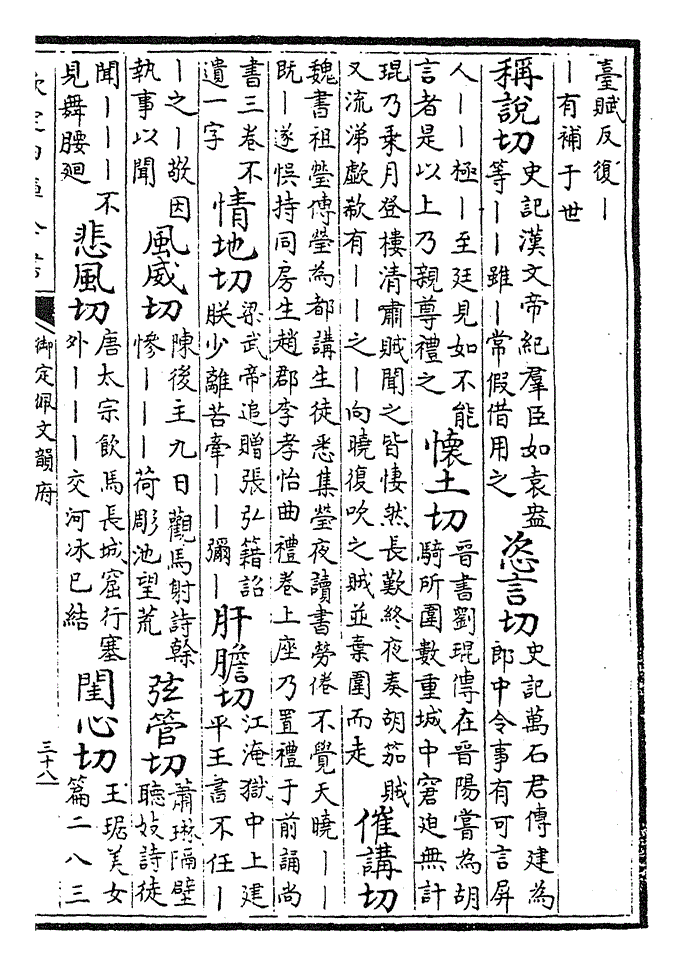 臺賦反復丨
丨有補于世
稱說切
史記漢文帝紀羣臣如袁盎
等丨丨雖丨常假借用之
恣言切
史記萬石君傳建為
郎中令事有可言屏
人丨丨極丨至廷見如不能
言者是以上乃親尊禮之
懷土切
晉書劉琨傳在晉陽嘗為胡
騎所圍數重城中窘迫無計
琨乃乗月登樓清肅賊聞之皆悽然長歎終夜奏胡笳賊
又流涕歔欷有丨丨之丨向曉復吹之賊並棄圍而走
催講切
魏書祖瑩傳瑩為都講生徒悉集瑩夜讀書勞倦不覺天曉丨丨
既丨遂悞持同房生趙郡李孝怡曲禮卷上座乃置禮于前誦尚
書三卷不
遺一字
情地切
梁武帝追贈張弘籍詔
朕少離苦牽丨丨彌丨
肝膽切
江淹獄中上建
平王書不任丨
丨之丨敬因
執事以聞
風威切
陳後主九日觀馬射詩榦
慘丨丨丨荷彫池望荒
弦管切
蕭琳隔壁
聽妓詩徒
聞丨丨丨不
見舞腰廻
悲風切
唐太宗飲馬長城窟行塞
外丨丨丨交河冰已結
閨心切
王琚美女
篇二八三
欽定四庫全書
御定佩文韻府
三十八